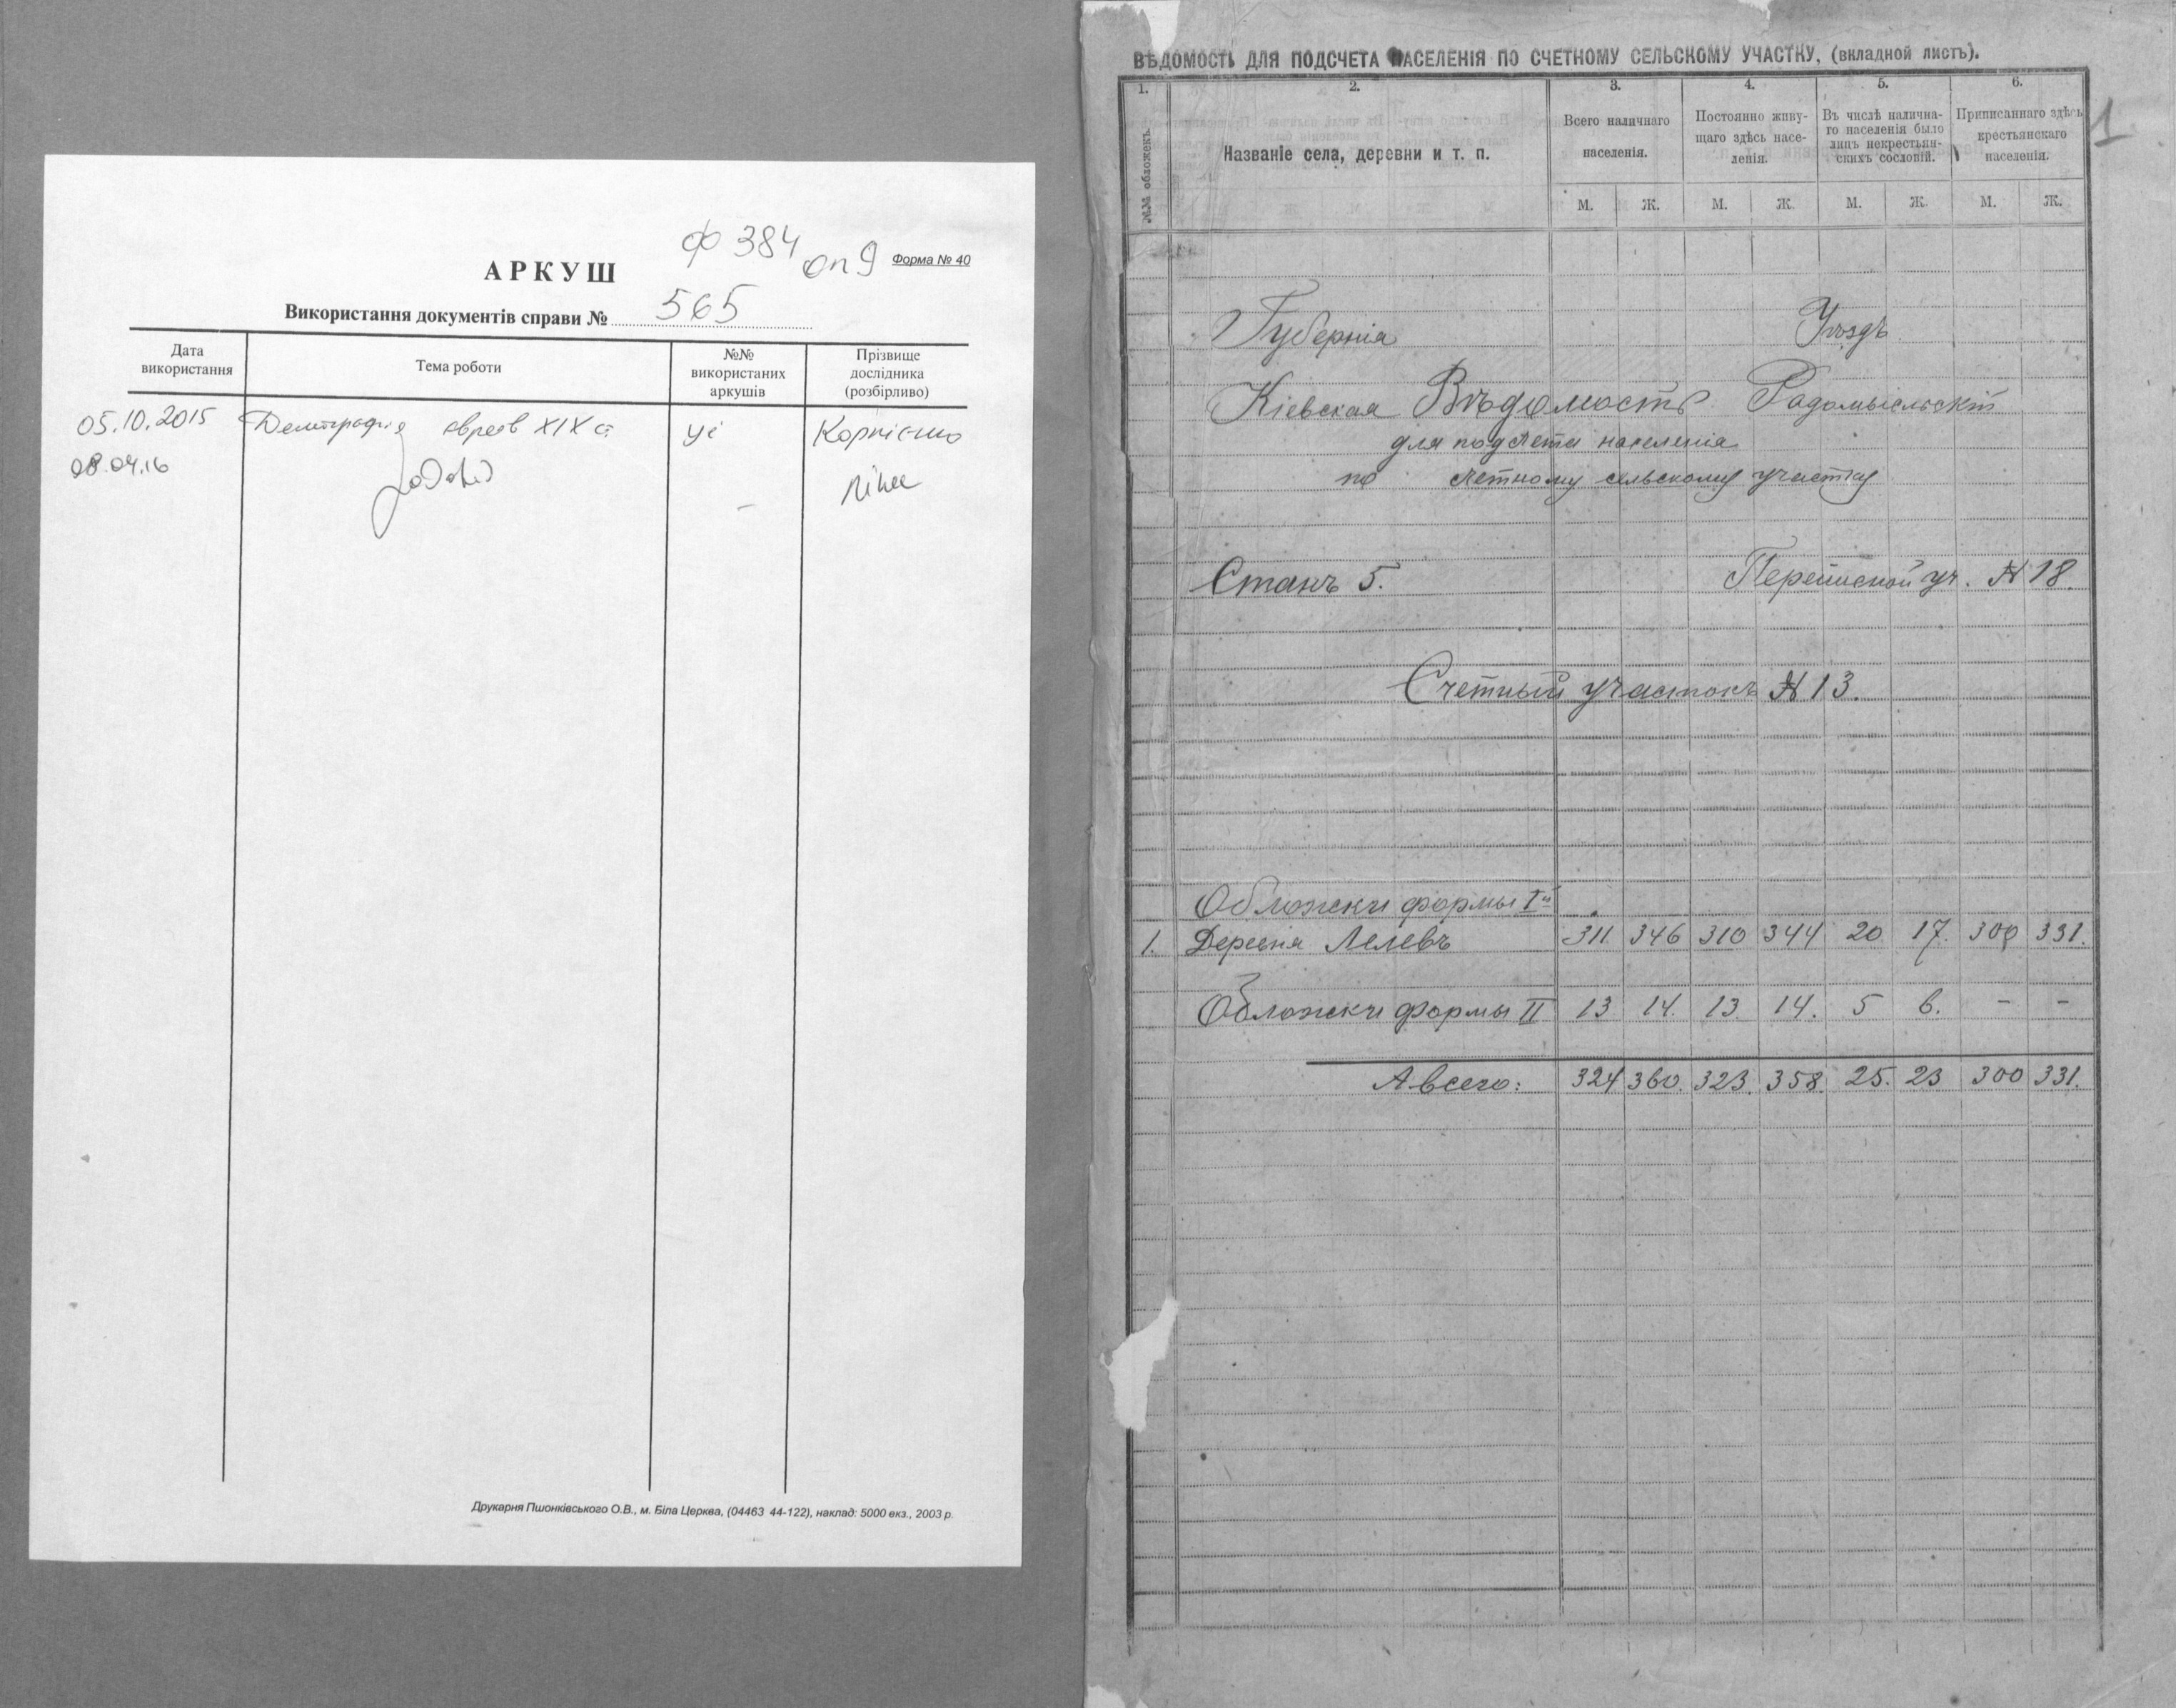 ф 384 оп 9
Форма № 40
АРКУШ
Використання документів справи № 565
Дата використання
Тема роботи
№№ використаних аркушів
Прізвище дослідника (розбірливо)
05.10.2015 Демографія євреїв XIX ст. усі
08.04.16
Друкарня Пшонківського О.В., м. Біла Церква, (04463 44-122), наклад: 5000 екз., 2003 р.
ВѢДОМОСТЬ ДЛЯ ПОДСЧЕТА НАСЕЛЕНІЯ ПО СЧЕТНОМУ СЕЛЬСКОМУ УЧАСТКУ, (вкладной листъ).
1
1. 2. 3. 4. 5. 6.
№№ обложекъ.
Названіе села, деревни и т. п.
Всего наличнаго населенія.
Постоянно живущаго здѣсь населенія.
Въ числѣ наличнаго населенія было лицъ некрестьянскихъ сословій.
Приписаннаго здѣсь крестьянскаго населенія.
М. Ж. М. Ж. М. Ж. М. Ж.
Губернія Уѣздъ
Кіевская Вѣдомость Радомысльскій
для подсчета населенія
по счетному сельскому участку
Станъ 5. Переписной уч. № 18.
Счетный участокъ № 13.
Обложки формы I й
1. Деревня Лелевъ 311 346 310 344 20 17. 300 331.
Обложки формы II 13 14. 13 14. 5 6. - -
А всего: 324 360. 323. 358. 25. 23 300 331.